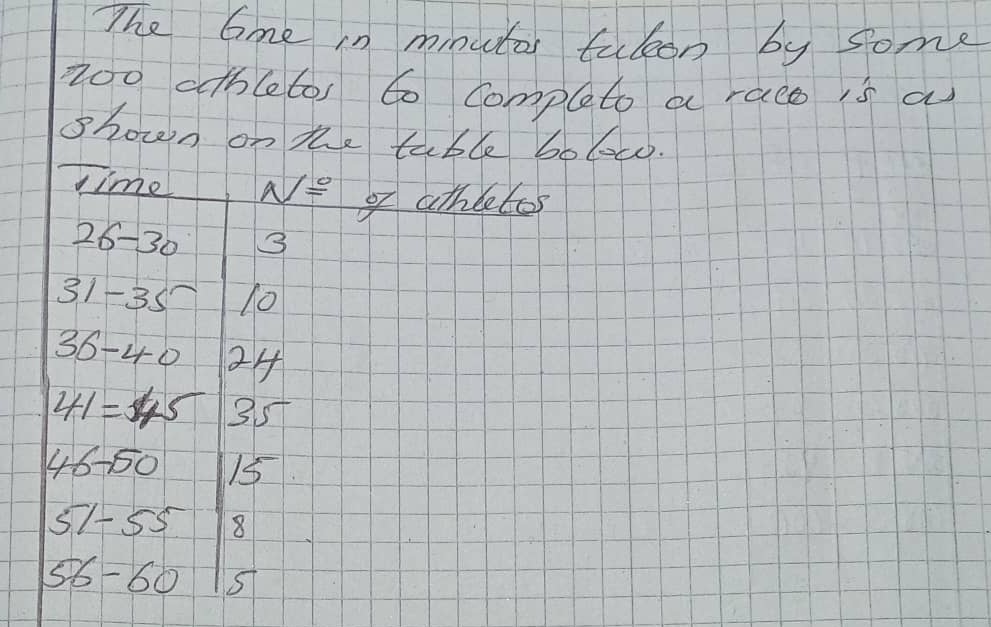 The time in minutes taken by some
200 athletes to complete a race is as
shown on the table below.
Time No of athletes
26-30 3
31-35 10
36-40 24
41=45 35
46-50 15
51-55 8
56-60 5